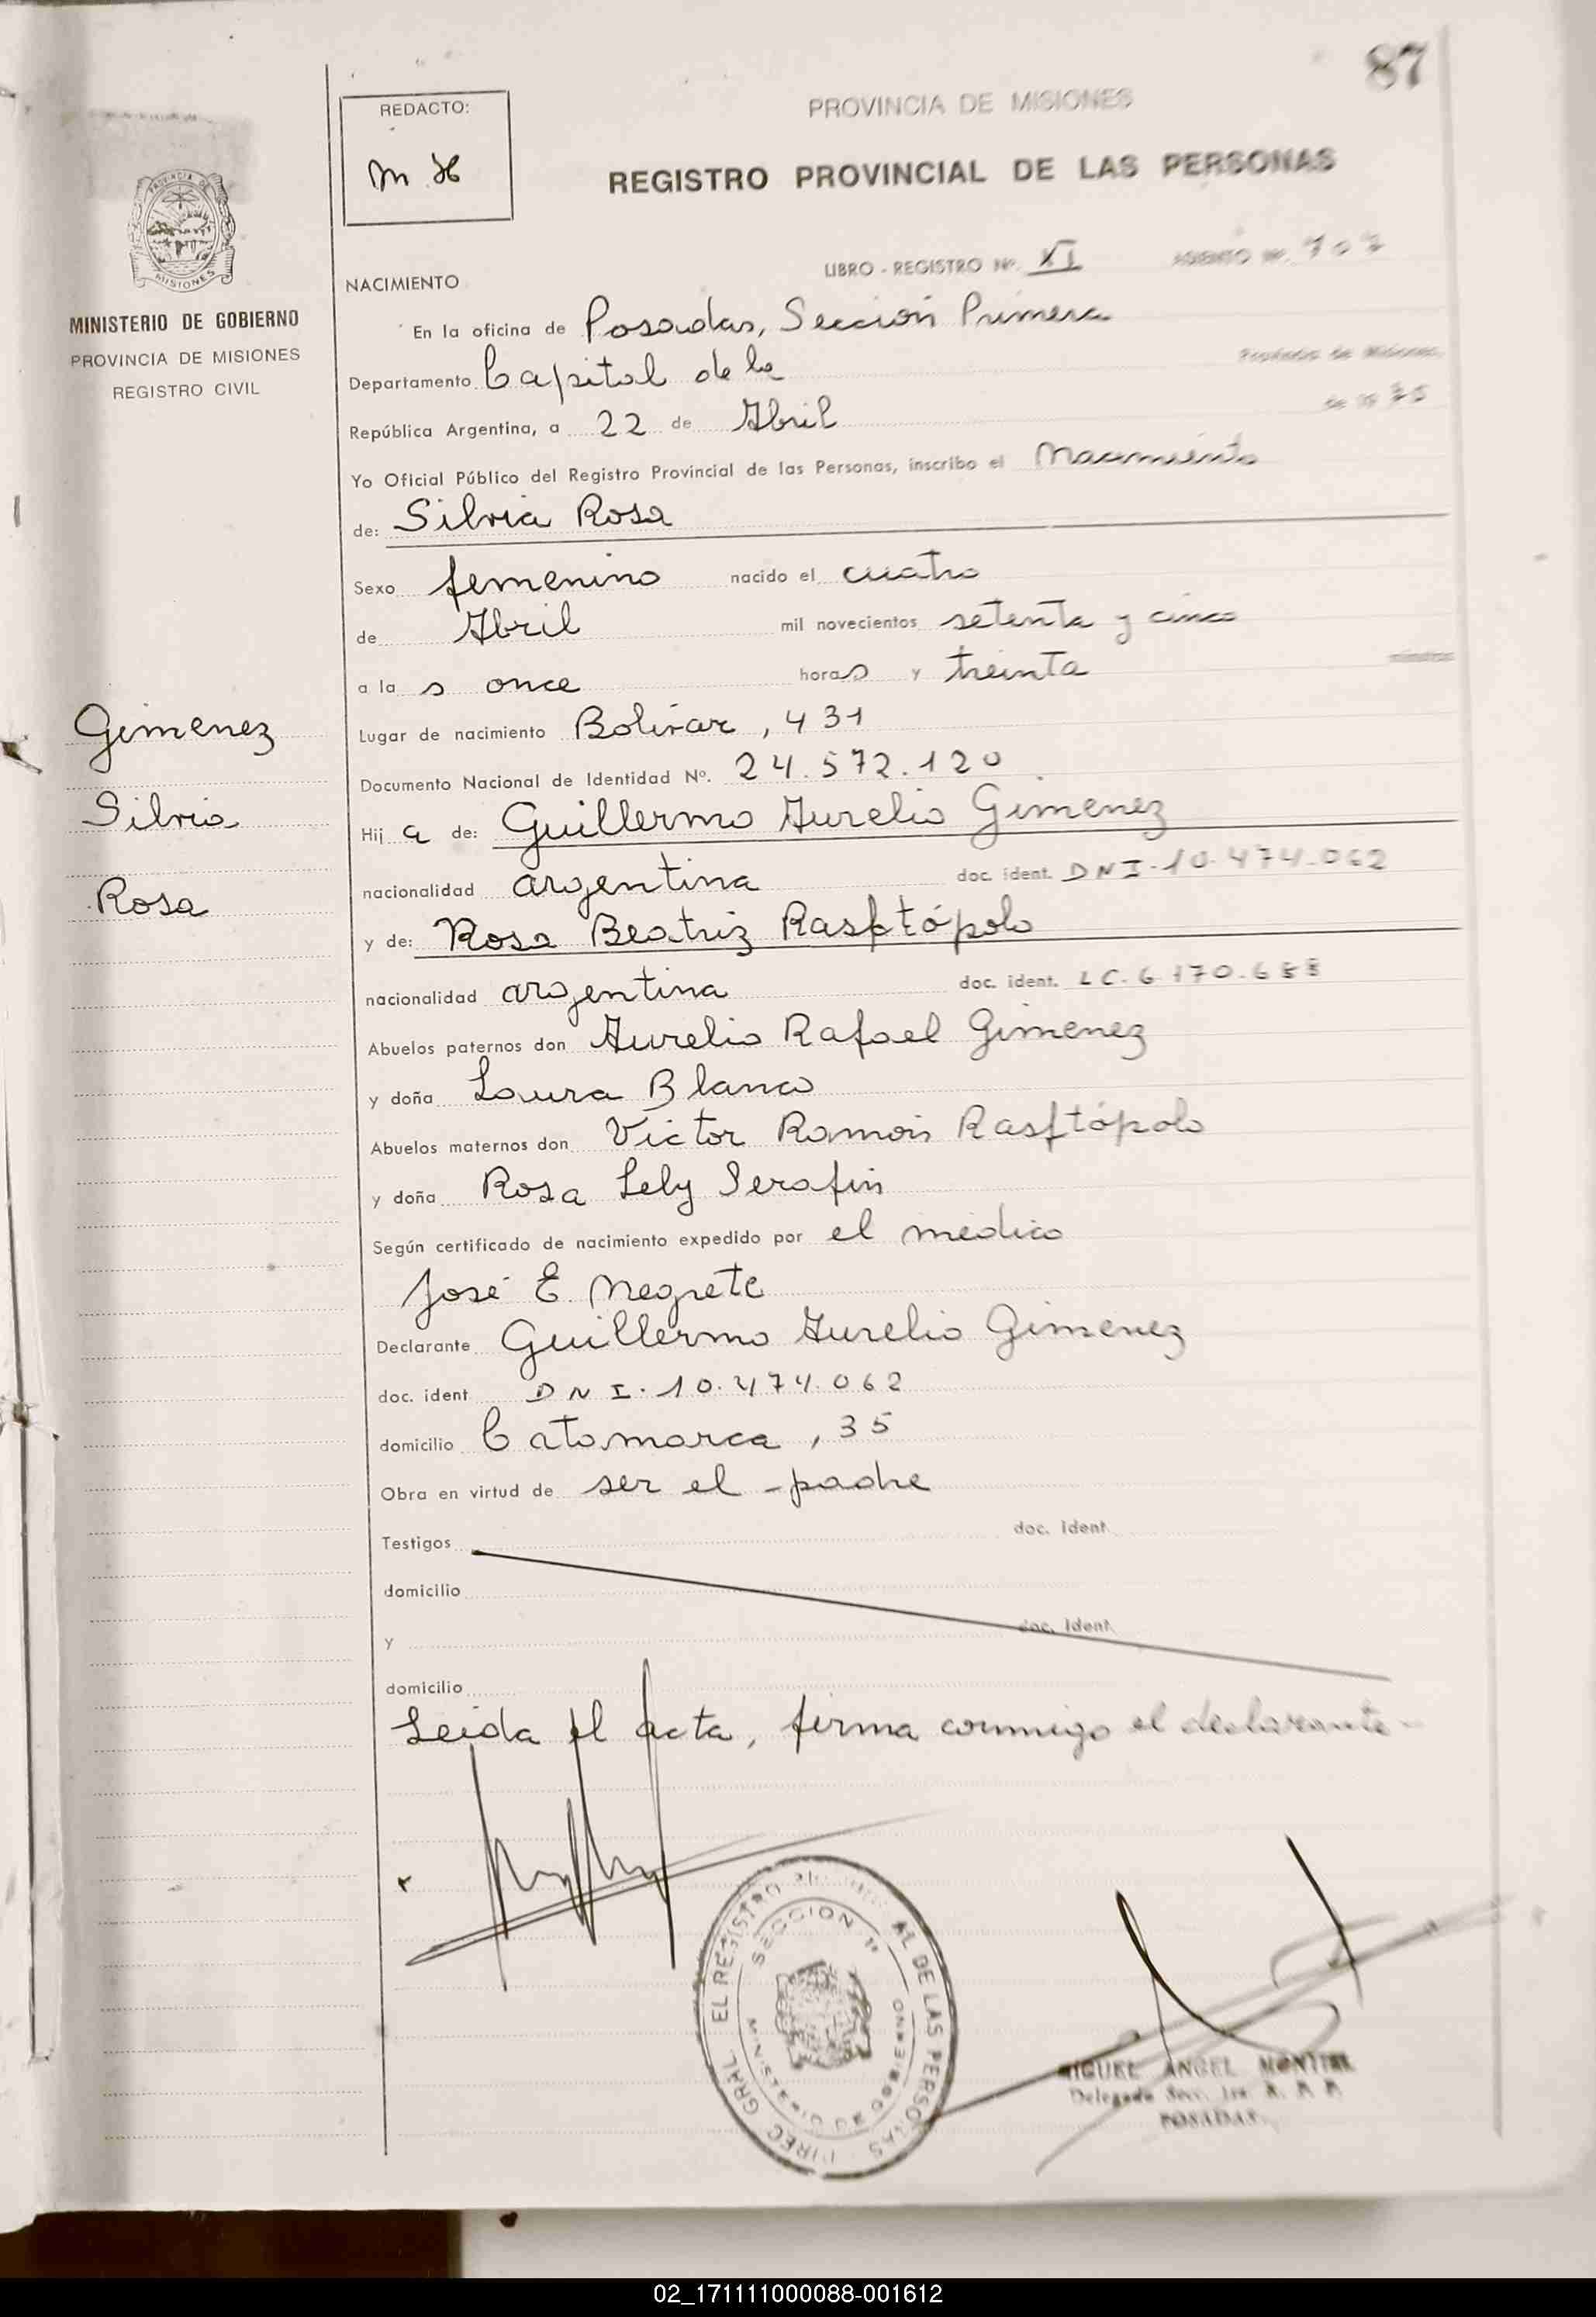 87
REDACTO:
PROVINCIA DE MISIONES
REGISTRO PROVINCIAL DE LAS PERSONAS
PROVINCIA DE
MISIONES
MINISTERIO DE GOBIERNO
PROVINCIA DE MISIONES
REGISTRO CIVIL
LIBRO - REGISTRO Nº. XI ASIENTO Nº. 707
NACIMIENTO
En la oficina de Posadas, Sección Primera
Departamento Capital de la Provincia de Misiones,
República Argentina, a 22 de Abril de 19 75
Yo Oficial Público del Registro Provincial de las Personas, inscribo el Nacimiento
de: Silvia Rosa
Sexo femenino nacido el cuatro
de Abril mil novecientos setenta y cinco
a la s once horas y treinta minutos
Lugar de nacimiento Bolívar, 431
Documento Nacional de Identidad Nº. 24.572.120
Hij a de: Guillermo Aurelio Gimenez
nacionalidad argentina doc. ident. DNI. 10.474.062
y de: Rosa Beatriz Rasftópolo
nacionalidad argentina doc. ident. LC. 6.170.688
Abuelos paternos don Aurelio Rafael Gimenez
y doña Laura Blanco
Abuelos maternos don Victor Ramón Rasftópolo
y doña Rosa Lely Serafin
Según certificado de nacimiento expedido por el médico
José E. Negrete
Declarante Guillermo Aurelio Gimenez
doc. ident. DNI. 10.474.062
domicilio Catamarca, 35
Obra en virtud de ser el padre
Testigos doc. ident.
domicilio
y doc. ident.
domicilio
Leida el acta, firma conmigo el declarante
Gimenez
Silvia
Rosa
DIREC. GRAL. EL REGISTRO AL DE LAS PERSONAS
SECCION 1ª
MINISTERIO DE GOBIERNO
MIGUEL ANGEL MONTIEL
Delegado Secc. 1ra. R. P. P.
POSADAS
02_171111000088-001612